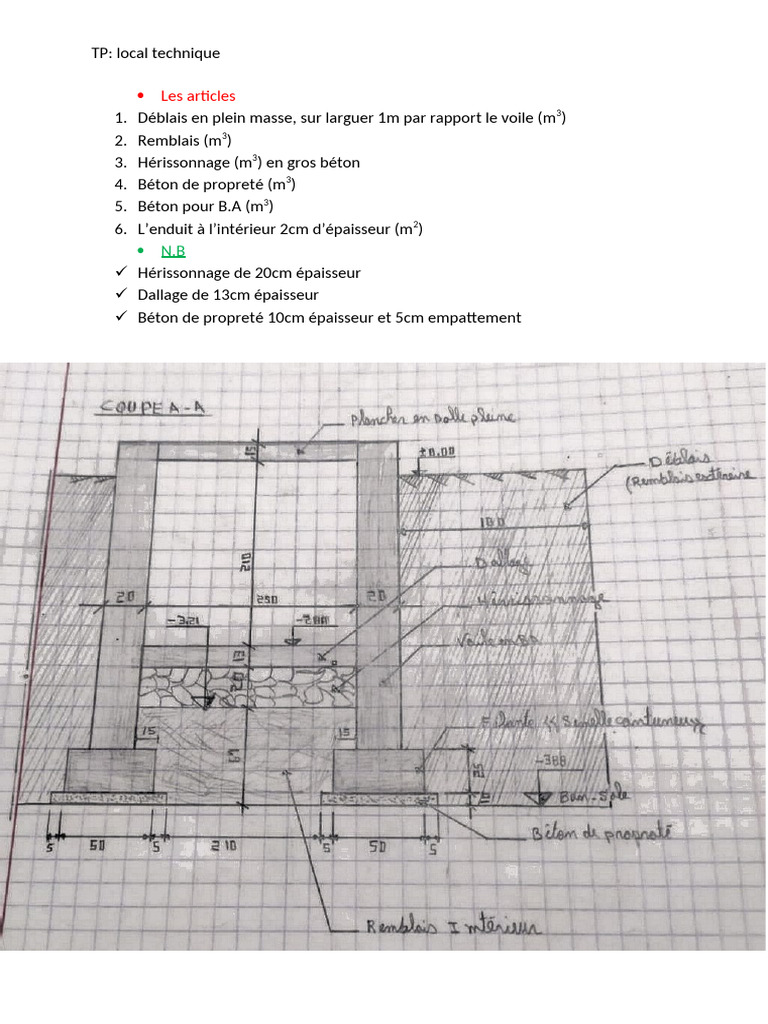 TP: local technique
• Les articles
1. Déblais en plein masse, sur larguer 1m par rapport le voile (m³)
2. Remblais (m³)
3. Hérissonnage (m³) en gros béton
4. Béton de propreté (m³)
5. Béton pour B.A (m³)
6. L’enduit à l’intérieur 2cm d’épaisseur (m²)
• N.B
✓ Hérissonnage de 20cm épaisseur
✓ Dallage de 13cm épaisseur
✓ Béton de propreté 10cm épaisseur et 5cm empattement
COUPE A-A
Plancher en Dalle pleine
15
±0.00
Déblais
(Remblais exterieure
100
210
Dallage
20
250
20
Hérissonnage
-3.21
Voile en BA
13
15
15
Semelle
67
-388
Bon-Sole
Béton de propreté
5 50 5 210 5 50 5
Remblais Intérieur